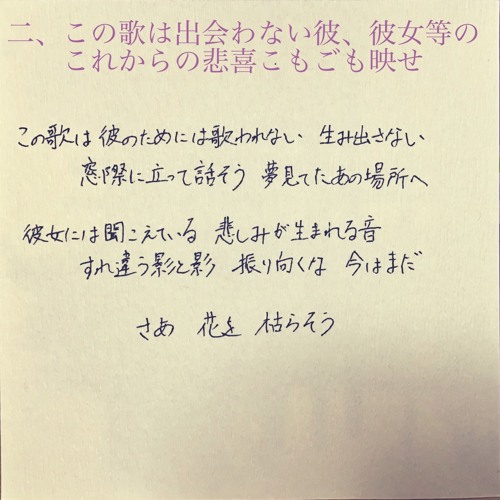 二、この歌は出会わない彼、彼女等の
これからの悲喜こもごも映せ
この歌は 彼のためには歌われない 生み出さない
窓際に立って話そう 夢見てたあの場所へ
彼女には聞こえている 悲しみが生まれる音
すれ違う影と影 振り向くな 今はまだ
さあ 花を 枯らそう